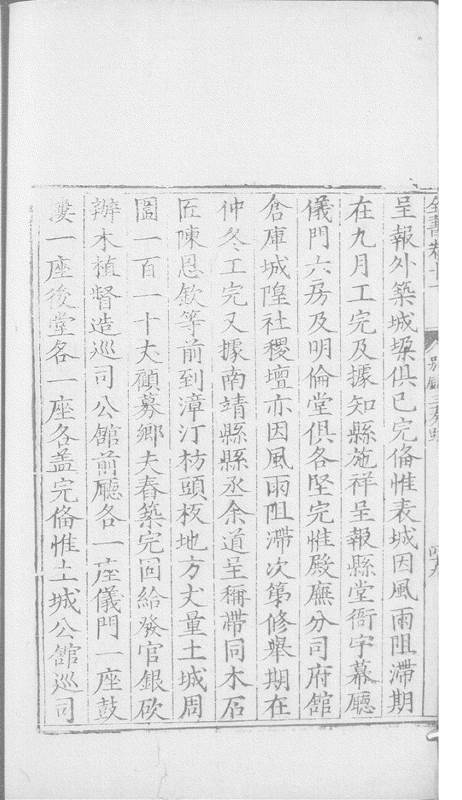 全書卷十一
呈報外築城垜俱已完備惟表城因風雨阻滯期
在九月工完及據知縣施祥呈報縣堂衙宇幕廳
儀門六房及明倫堂俱各堅完惟殿廡分司府館
倉庫城隍社稷壇亦因風雨阻滯次第修舉期在
仲冬工完又據南靖縣縣丞余道呈稱帶同木石
匠陳恩欽等前到漳汀枋頭板地方丈量土城周
圍一百一十丈顧募鄉夫舂築完固給發官銀砍
辦木植督造巡司公館前廳各一座儀門一座鼓
樓一座後堂各一座各蓋完備惟土城公館巡司